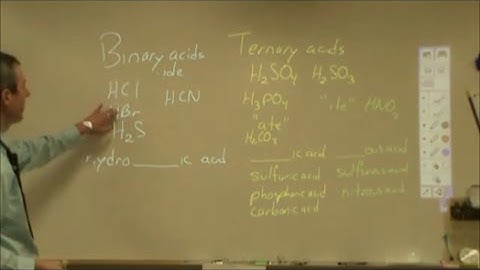 Binary acids
ide
HCl
HCN
HBr
H₂S
hydro ____ ic acid
Ternary acids
H₂SO₄ H₂SO₃
H₃PO₄ "ite" HNO₂
"ate"
H₂CO₃
____ ic acid ____ ous acid
sulfuric acid sulfurous acid
phosphoric acid nitrous acid
carbonic acid